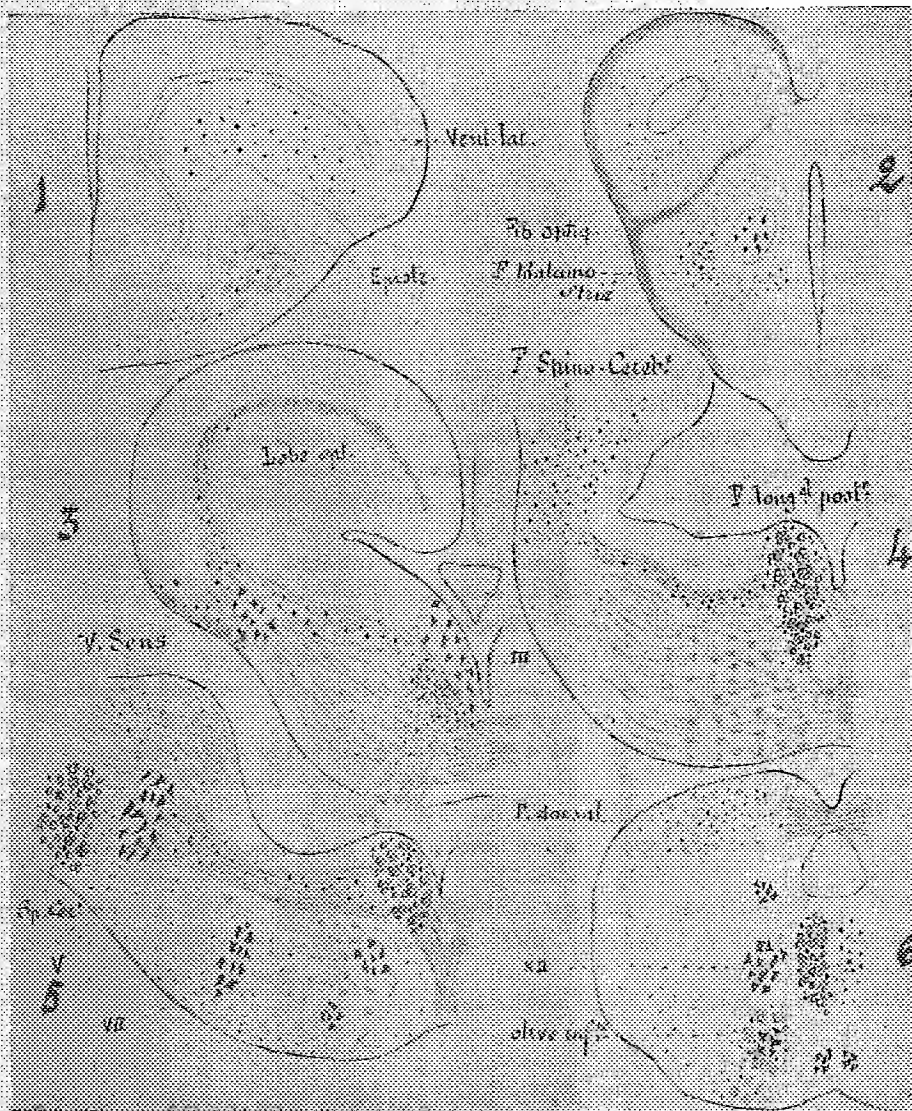 1
Vent. lat.
2
Fib optiq.
Epist.
F. thalamo-
F. Spino-Cereb.
Lobe opt.
F. long.al post.r
3
4
V. Sens
III
F. dorsal
Sp. cer.
V
XII
6
5
VII
olive inf.re